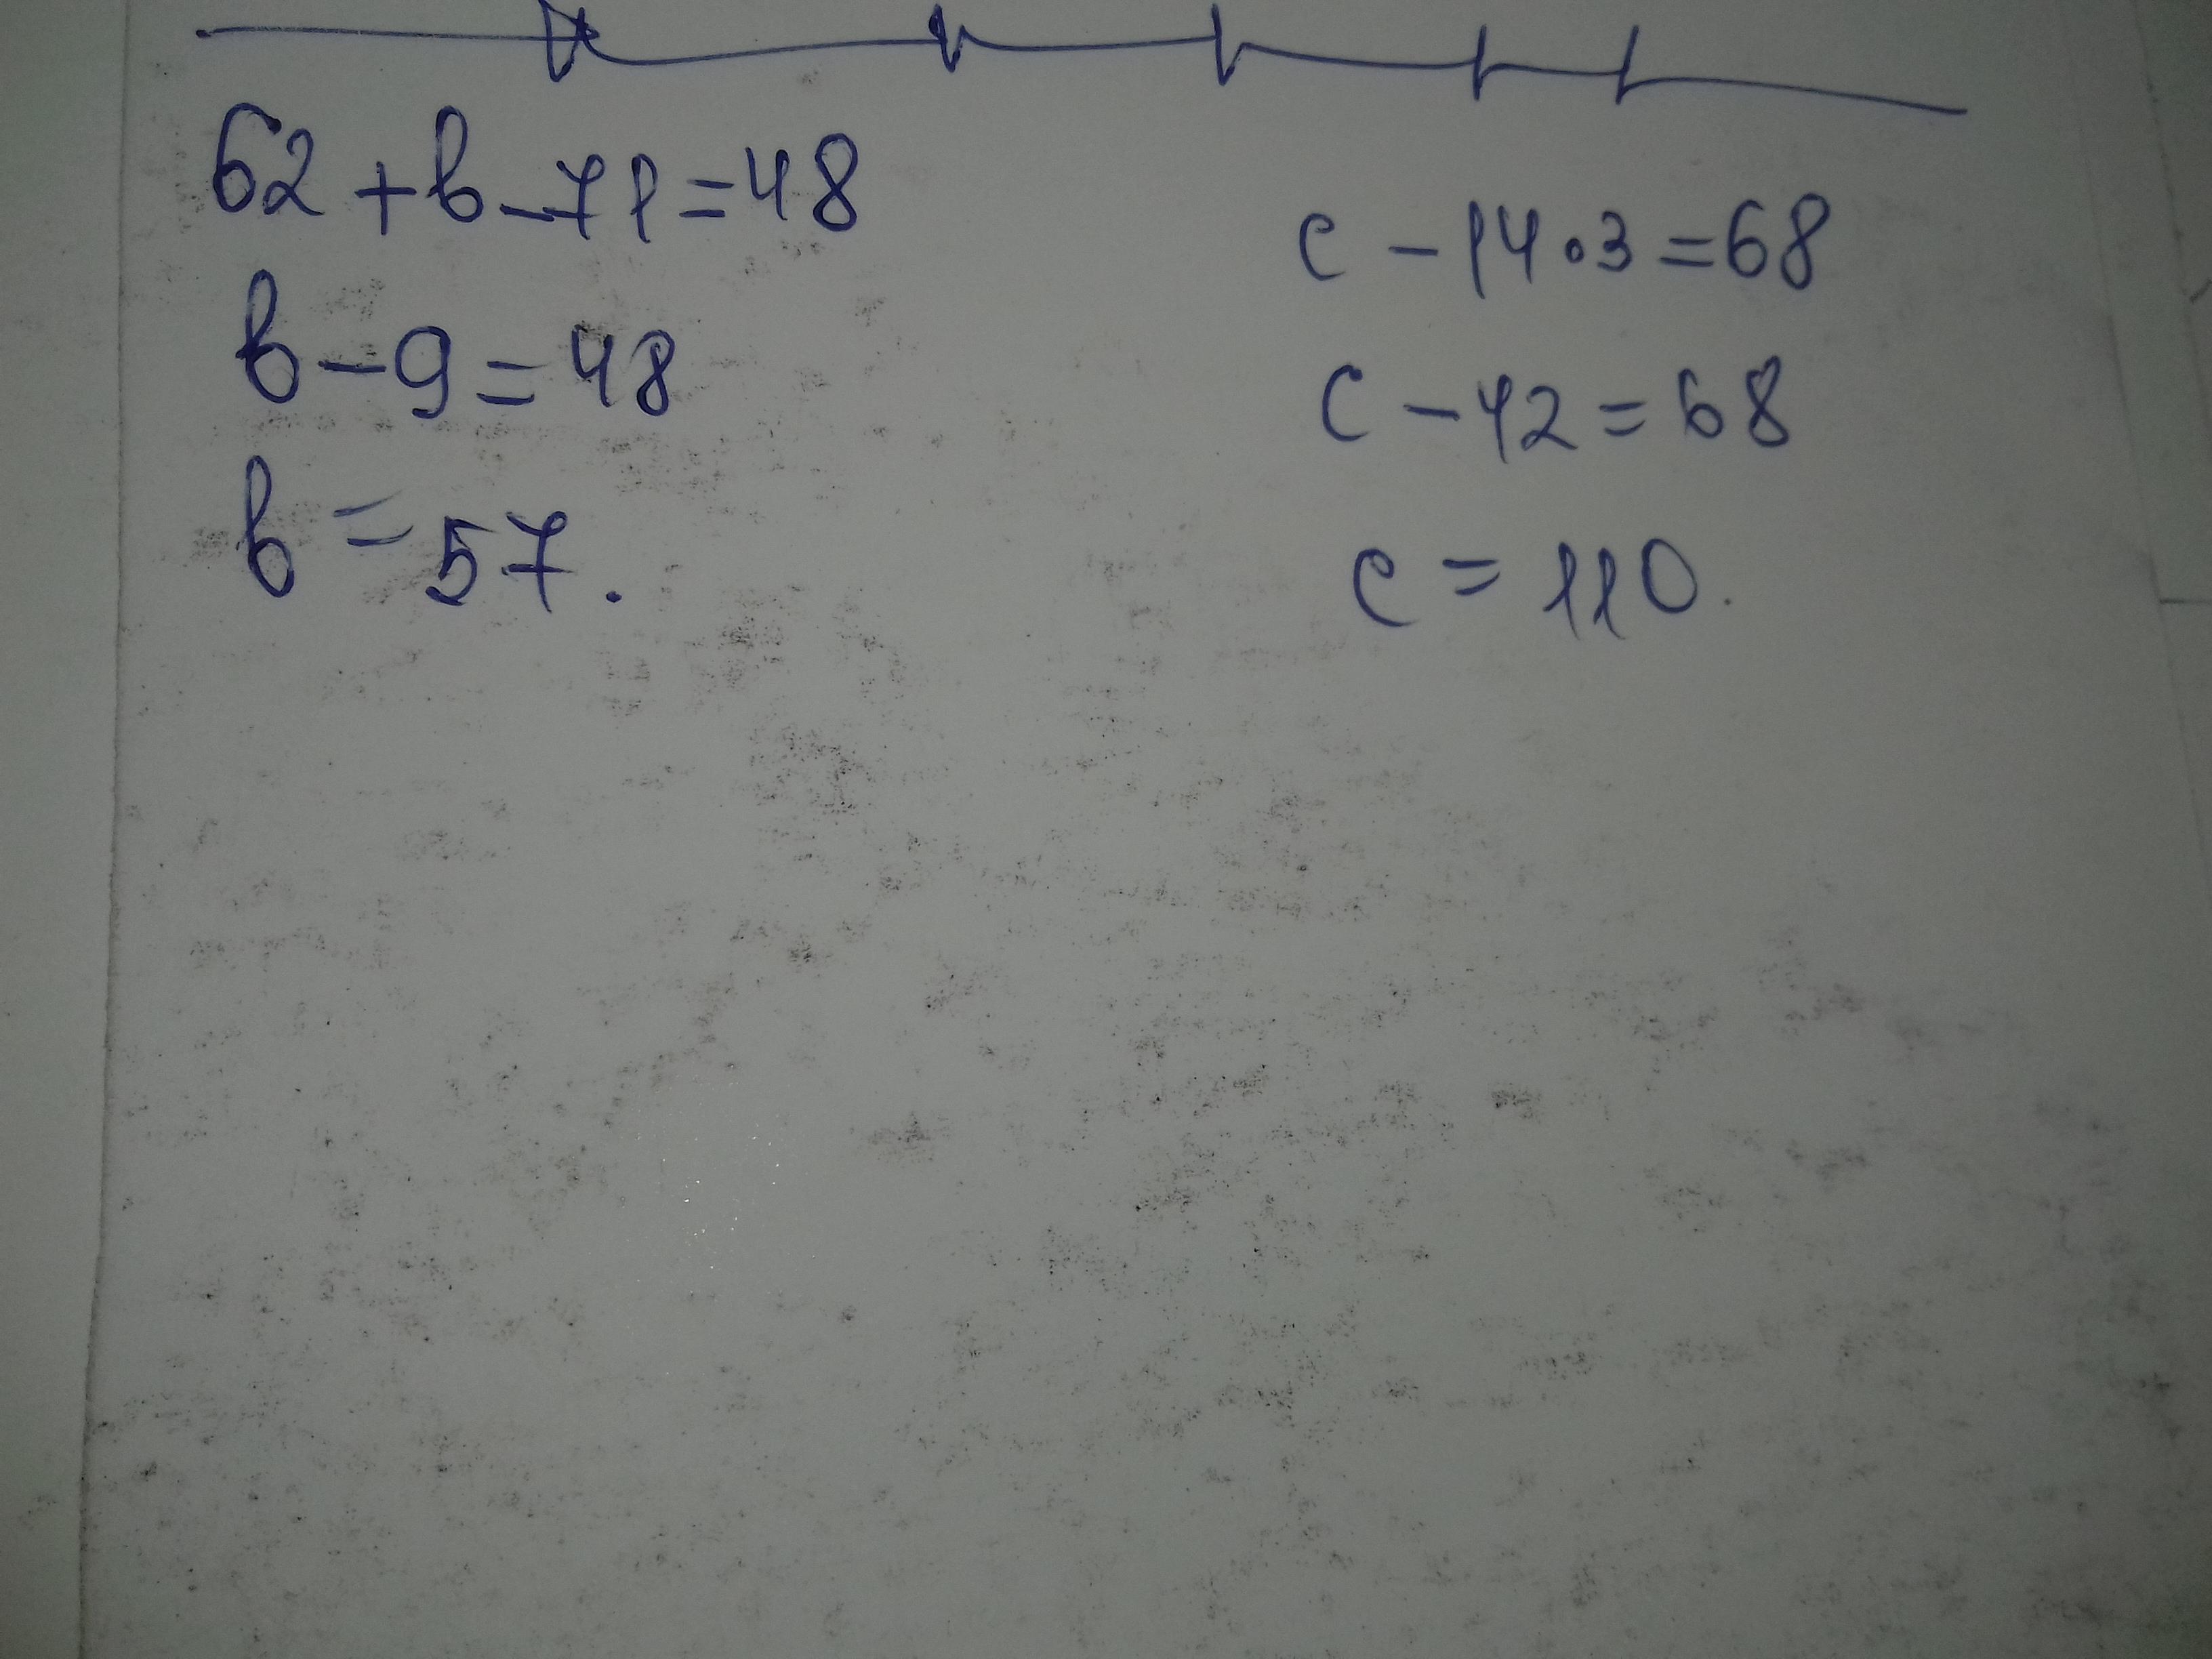 62 + b - 71 = 48
b - 9 = 48
b = 57.
c - 14 • 3 = 68
c - 42 = 68
c = 110.